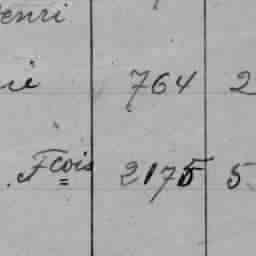 enri
ie 764 2
Fcois 2175 5